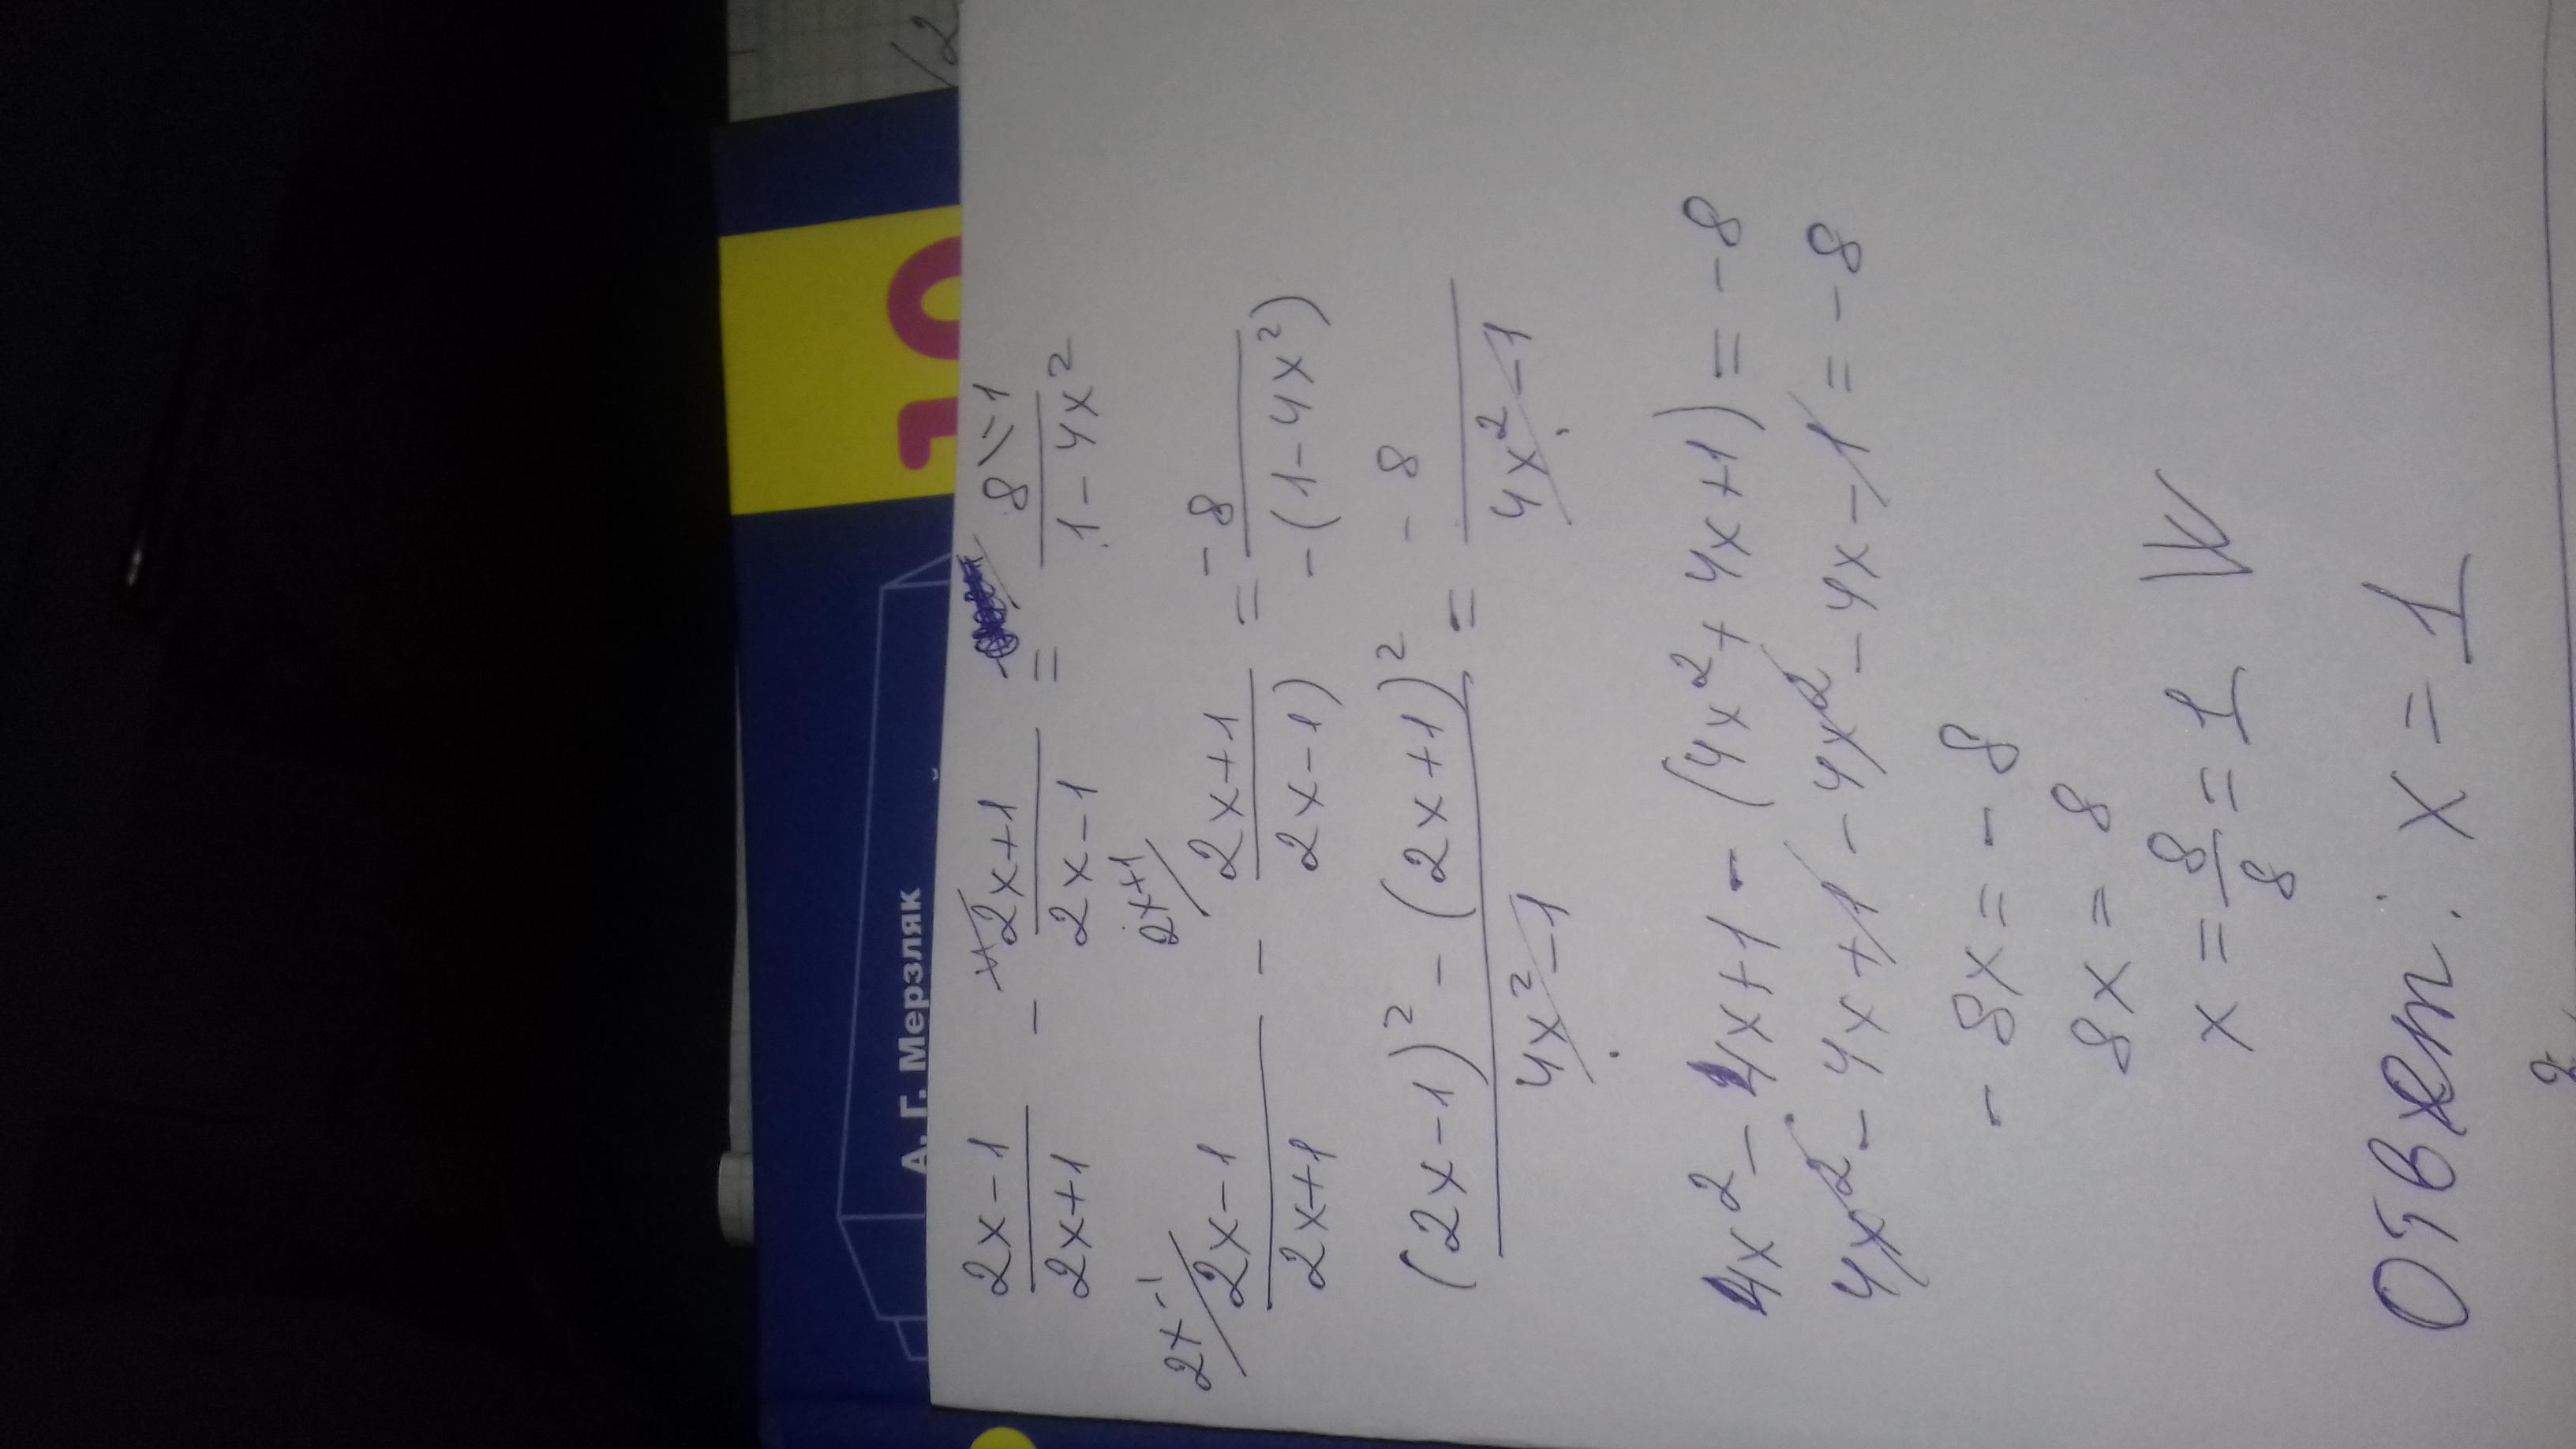 А. Г. Мерзляк
10
2x-1 / 2x+1 - 2x+1 / 2x-1 = 8\-1 / 1-4x²
2x-1/ 2x-1 / 2x+1 - 2x+1/ 2x+1 / 2x-1) = -8 / -(1-4x²)
(2x-1)² - (2x+1)² / 4x²-1 = -8 / 4x²-1
4x²-4x+1-(4x²+4x+1)=-8
4x²-4x+1-4x²-4x-1=-8
-8x=-8
8x=8
x=8/8=1
Ответ: x=1